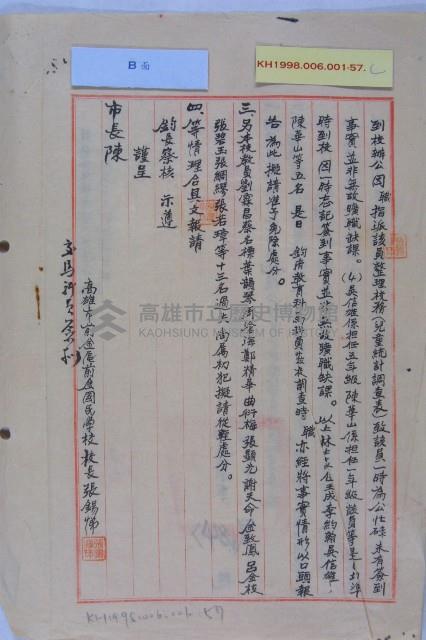 B面
KH1998.006.001-57.
到校辦公因職指派該員整理校務(兒童統計調查表)致該員一時為公忙碌未有簽到
事實並非無故曠職缺課。(4)吳信雄係担任五年級陳華山係担任一年級該員等是日準
時到校因一時忘記簽到事實並非無故曠職缺課。以上林
成李約翰吳信雄
陳華山等五名是日鈞府教育科
科員蒞校調查時職亦經將事實情形以口頭報
告為此擬請准予免除處分。
三、另本校教員劉霖昌蔡名標葉
琴
滄海鄭精華曲衍梅張顯光謝天命金敦鳳呂金枝
張碧玉張綢繆張若瑋等十三名過失尚屬初犯擬請從輕處分。
四、等情理合具文報請
鈞安察核示遵
謹呈
市長陳
高雄市前金區前金國民學校校長張錫惕
高雄市立歷史博物館
KAOHSIUNG MUSEUM OF HISTORY
KH1998.006.001.57